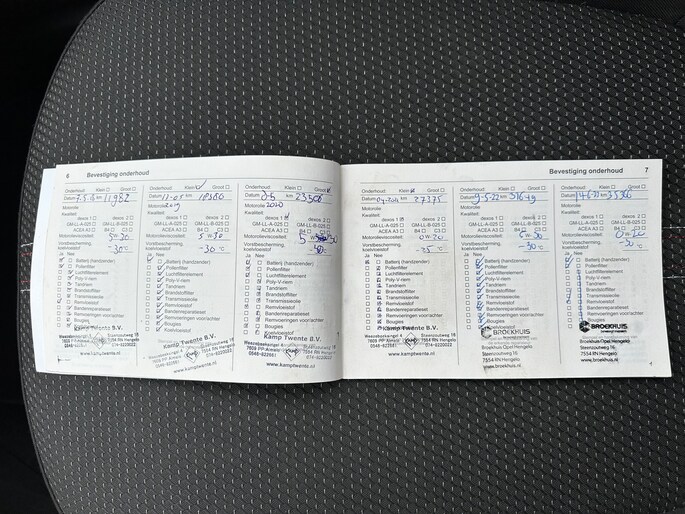 6 Bevestiging onderhoud
Onderhoud: Klein Groot
Datum km 11982
Motorolie
Kwaliteit:
dexos 1 dexos 2
GM-LL-A-025 GM-LL-B-025
ACEA A3 B4 C3
Motorolieviscositeit: 5w30
Vorstbescherming,
koelvloeistof -30°C
Ja Nee
Batterij (handzender)
Pollenfilter
Luchtfilterelement
Poly-V-riem
Tandriem
Brandstoffilter
Transmissieolie
Remvloeistof
Bandenreparatieset
Remvoeringen voor/achter
Bougies
Koelvloeistof
Kamp Twente B.V.
www.kamptwente.nl
Onderhoud: Klein Groot
Datum km
Motorolie
Kwaliteit:
dexos 1 dexos 2
GM-LL-A-025 GM-LL-B-025
ACEA A3 B4 C3
Motorolieviscositeit: 5w30
Vorstbescherming,
koelvloeistof -30°C
Ja Nee
Batterij (handzender)
Pollenfilter
Luchtfilterelement
Poly-V-riem
Tandriem
Brandstoffilter
Transmissieolie
Remvloeistof
Bandenreparatieset
Remvoeringen voor/achter
Bougies
Koelvloeistof
Kamp Twente B.V.
www.kamptwente.nl
Onderhoud: Klein Groot
Datum km
Motorolie 2020
Kwaliteit:
dexos 1 dexos 2
GM-LL-A-025 GM-LL-B-025
ACEA A3 B4 C3
Motorolieviscositeit:
Vorstbescherming,
koelvloeistof
Ja Nee
Batterij (handzender)
Pollenfilter
Luchtfilterelement
Poly-V-riem
Tandriem
Brandstoffilter
Transmissieolie
Remvloeistof
Bandenreparatieset
Remvoeringen voor/achter
Bougies
Koelvloeistof
Kamp Twente B.V.
www.kamptwente.nl
Bevestiging onderhoud 7
Onderhoud: Klein Groot
Datum km 27375
Motorolie
Kwaliteit:
dexos 1 dexos 2
GM-LL-A-025 GM-LL-B-025
ACEA A3 B4 C3
Motorolieviscositeit: 0w20
Vorstbescherming,
koelvloeistof °C
Ja Nee
Batterij (handzender)
Pollenfilter
Luchtfilterelement
Poly-V-riem
Tandriem
Brandstoffilter
Transmissieolie
Remvloeistof
Bandenreparatieset
Remvoeringen voor/achter
Bougies
Kamp Twente B.V.
www.kamptwente.nl
Onderhoud: Klein Groot
Datum 9-5-22 km 31649
Motorolie
Kwaliteit:
dexos 1 dexos 2
GM-LL-A-025 GM-LL-B-025
ACEA A3 B4 C3
Motorolieviscositeit:
Vorstbescherming,
koelvloeistof -30°C
Ja Nee
Batterij (handzender)
Pollenfilter
Luchtfilterelement
Poly-V-riem
Tandriem
Brandstoffilter
Transmissieolie
Remvloeistof
Bandenreparatieset
Remvoeringen voor/achter
Bougies
BROEKHUIS
Broekhuis Opel Hengelo
Steenzoutweg 16
7554 RN Hengelo
www.broekhuis.nl
Onderhoud: Klein Groot
Datum km
Motorolie
Kwaliteit:
dexos 1 dexos 2
GM-LL-A-025 GM-LL-B-025
ACEA A3 B4 C3
Motorolieviscositeit:
Vorstbescherming,
koelvloeistof -30 °C
Ja Nee
Batterij (handzender)
Pollenfilter
Luchtfilterelement
Poly-V-riem
Tandriem
Brandstoffilter
Transmissieolie
Remvloeistof
Bandenreparatieset
Remvoeringen voor/achter
Bougies
BROEKHUIS
Broekhuis Opel Hengelo
Steenzoutweg 16
7554 RN Hengelo
www.broekhuis.nl